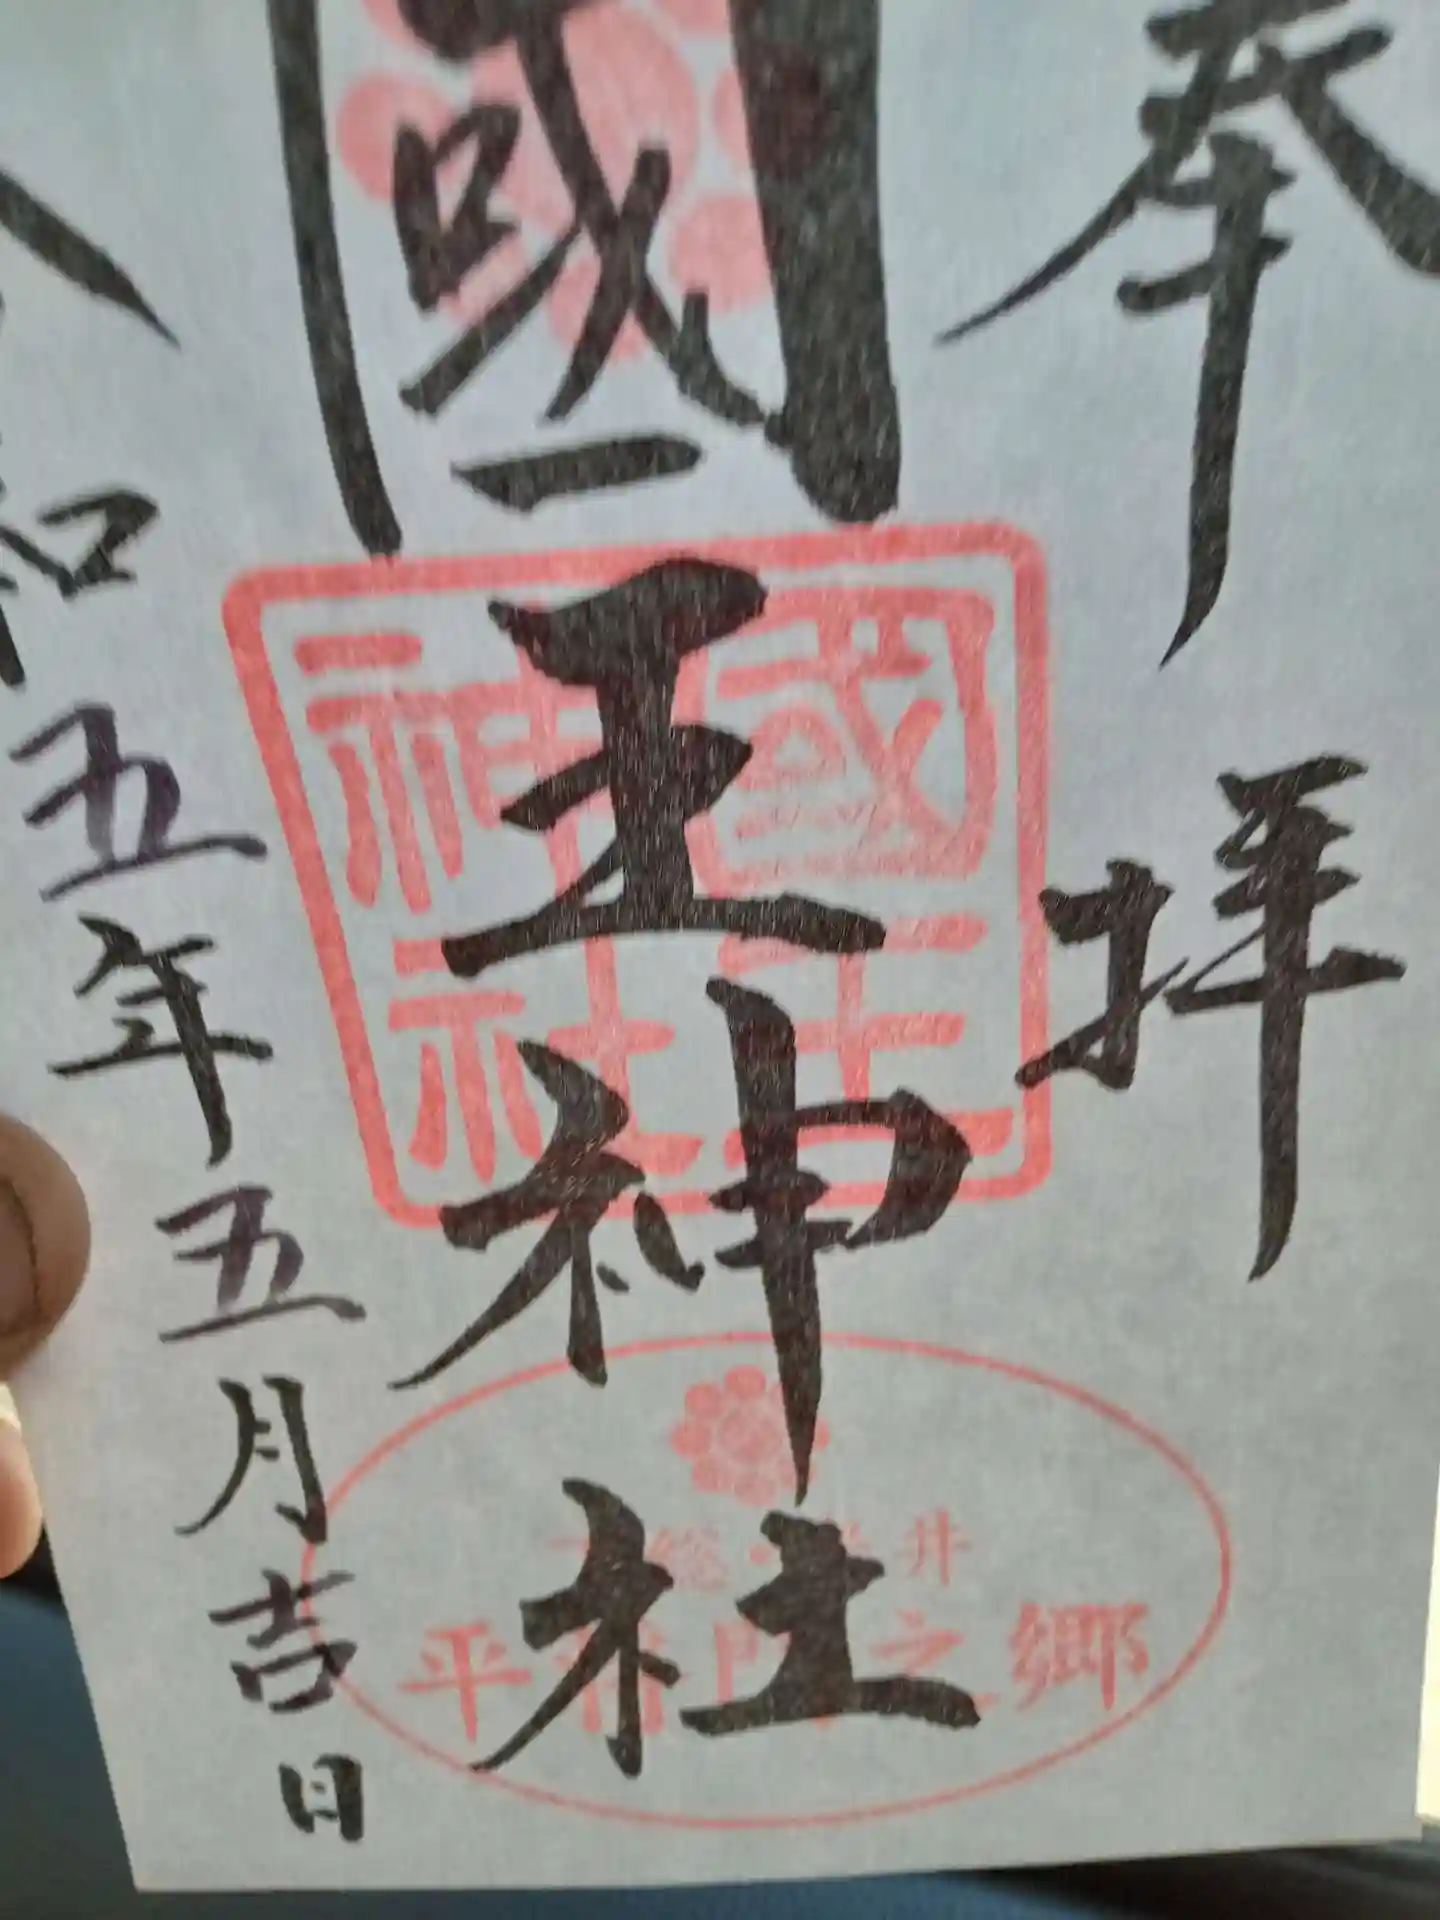 奉拝
國王神社
國王
神社
井
平将門之郷
令和五年五月吉日